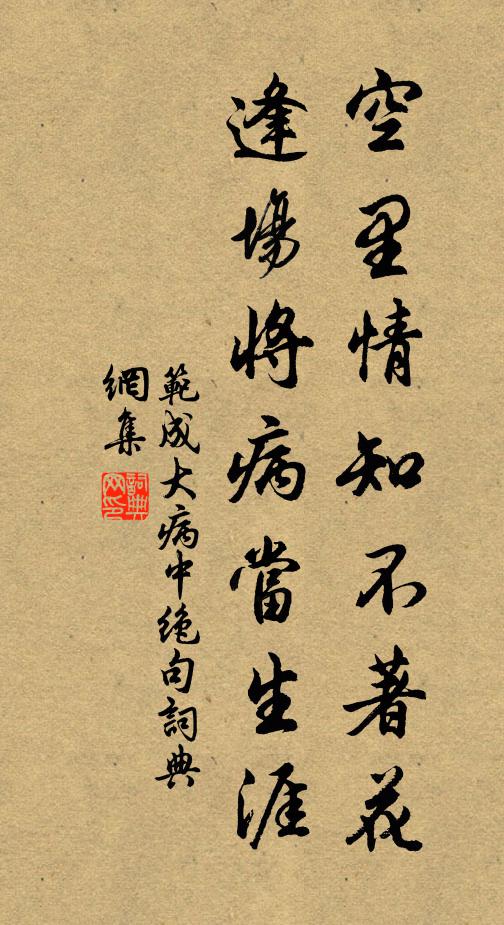 空里情知不著花
逢場將病當生涯
範成大病中絶句詞典
網集
詞典
网印